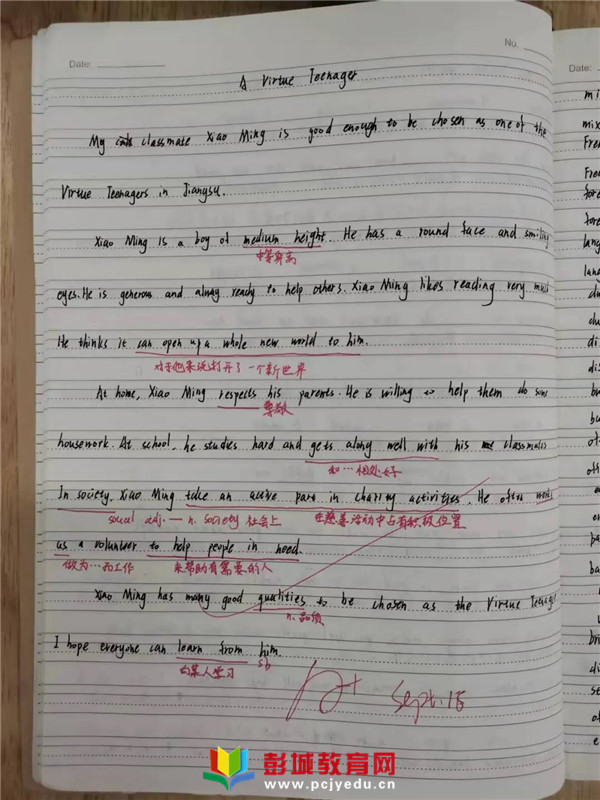 No.
Date:
Date:
A Virtue Teenager
My classmate Xiao Ming is good enough to be chosen as one of the
Virtue Teenagers in Jiangsu.
Xiao Ming is a boy of medium height. He has a round face and smiling
中等身高
eyes. He is generous and ready to help others. Xiao Ming likes reading very much
He thinks it can open up a whole new world to him.
对于他来说打开了一个新世界
At home, Xiao Ming respects his parents. He is willing to help them do some
尊敬
housework. At school, he studies hard and gets along well with his classmates
和…相处好
In society, Xiao Ming take an active part in charity activities. He often works
social adj. — n. society 社会上 在慈善活动中占有积极位置
as a volunteer to help people in need.
做为…而工作 来帮助有需要的人
Xiao Ming has many good qualities to be chosen as the Virtue Teenager
n.品质
I hope everyone can learn from him.
sb
向某人学习
A+ Sept.15
彭城教育网
www.pcjyedu.cn